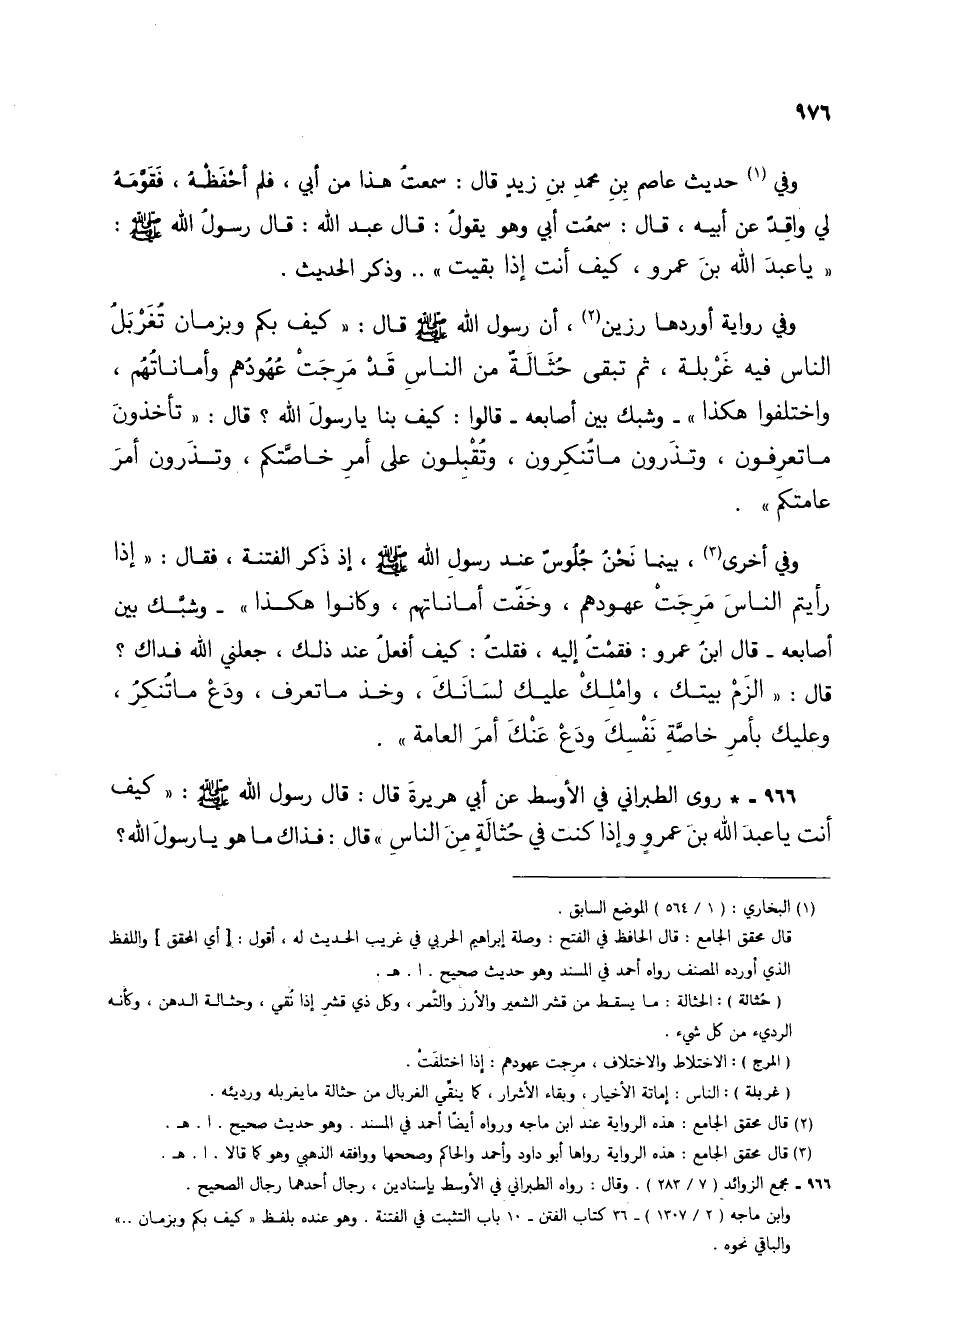 ٩٧٦
وفي (١) حديث عاصم بنِ محمدِ بنِ زيدٍ قال : سمعتُ هذا من أبي ، فلم أحْفَظْهُ ، فَقَوَّمَهُ
لي واقِدٌ عن أبيه ، قال : سمعْت أبي وهو يقولُ : قال عبد الله : قال رسولُ الله ﷺ :
« ياعبدَ الله بنَ عمرو ، كيف أنت إذا بقيت » .. وذكر الحديث .
وفي رواية أوردها رزين(٢) ، أن رسول الله ﷺ قال : « كيف بكم وبزمان تُغَرْبَلُ
الناس فيه غَرْبلة ، ثم تبقى حُثَالَةٌ من الناسِ قَدْ مَرِجَتْ عُهُودُهم وأماناتُهُم ،
واختلفوا هكذا » ـ وشبك بين أصابعه ـ قالوا : كيف بنا يارسولَ الله ؟ قال : « تأخذونَ
ماتعرِفون ، وتذَرون ماتُنكِرون ، وتُقْبِلون على أمرِ خاصَّتكم ، وتذَرون أمرَ
عامتكم » .
وفي أخرى(٣) ، بينما نَحْنُ جُلُوسٌ عند رسولِ الله ﷺ ، إذ ذَكر الفتنة ، فقال : « إذا
رأيتم الناسَ مَرِجَتْ عهودهم ، وخَفّت أماناتهم ، وكانوا هكذا » ـ وشبَّك بين
أصابعه ـ قال ابنُ عمرو : فقمْتُ إليه ، فقلتُ : كيف أفعلُ عند ذلك ، جعلني الله فداك ؟
قال : « الزَمْ بيتك ، وامْلِكْ عليك لسَانَكَ ، وخذ ماتعرف ، ودَعْ ماتُنكرُ ،
وعليك بأمرِ خاصَّةِ نَفْسِكَ ودَعْ عَنْكَ أمرَ العامة » .
٩٦٦ ـ * روى الطبراني في الأوسط عن أبي هريرةَ قال : قال رسول الله ﷺ : « كيف
أنت ياعبدَ الله بنَ عمروٍ وإذا كنت في حُثالَةٍ مِنَ الناسِ » قال : فذاك ما هو يارسولَ الله؟
(١) البخاري : ( ١ / ٥٦٤ ) الموضع السابق .
قال محقق الجامع : قال الحافظ في الفتح : وصلة إبراهيم الحربي في غريب الحديث له ، أقول : [ أي المحقق ] واللفظ
الذي أورده المصنف رواه أحمد في المسند وهو حديث صحيح . ا . هـ .
( حُثالة ) : الحثالة : ما يسقط من قشر الشعير والأرز والتّمر ، وكل ذي قشرٍ إذا نُقي ، وحثالة الدهن ، وكأنه
الرديء من كل شيء .
( المرج ) : الاختلاط والاختلاف ، مرجت عهودهم : إذا اختلفَتْ .
( غربلة ) : الناس : إماتة الأخيار ، وبقاء الأشرار ، كما ينقِّي الغربال من حثالة مايغربله ورديئه .
(٢) قال محقق الجامع : هذه الرواية عند ابن ماجه ورواه أيضًا أحمد في المسند . وهو حديث صحيح . ا . هـ .
(٣) قال محقق الجامع : هذه الرواية رواها أبو داود وأحمد والحاكم وصححها ووافقه الذهبي وهو كما قالا . ا . هـ .
٩٦٦ ـ مجمع الزوائد ( ٧ / ٢٨٣ ) . وقال : رواه الطبراني في الأوسط بإسنادين ، رجال أحدهما رجال الصحيح .
وابن ماجه ( ٢ / ١٣٠٧ ) ـ ٣٦ كتاب الفتن ـ ١٠ باب التثبت في الفتنة . وهو عنده بلفظ « كيف بكم وبزمان .. »
والباقي نحوه .